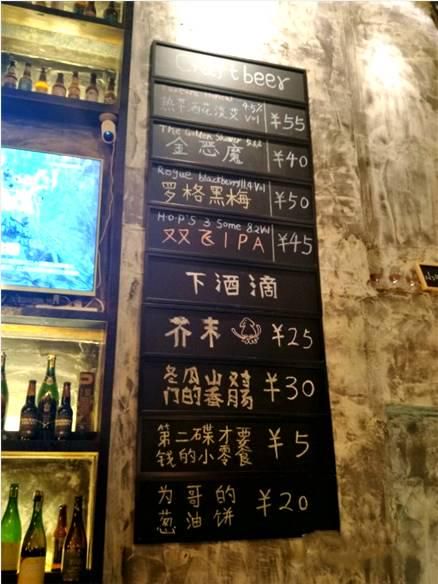 Craft beer
热带酒花淡艾
4.5%
Vol
¥55
The Golden Shower 5.8%
金恶魔
¥40
Rogue blackberry 11.4 Vol
罗格黑梅
¥50
Hop's 3 Some 8.2 Vol
双飞IPA
¥45
下酒滴
芥末
¥25
冬瓜山鸡
门的香肠
¥30
第二碟才要
钱的小零食
¥5
为哥的
葱油饼
¥20